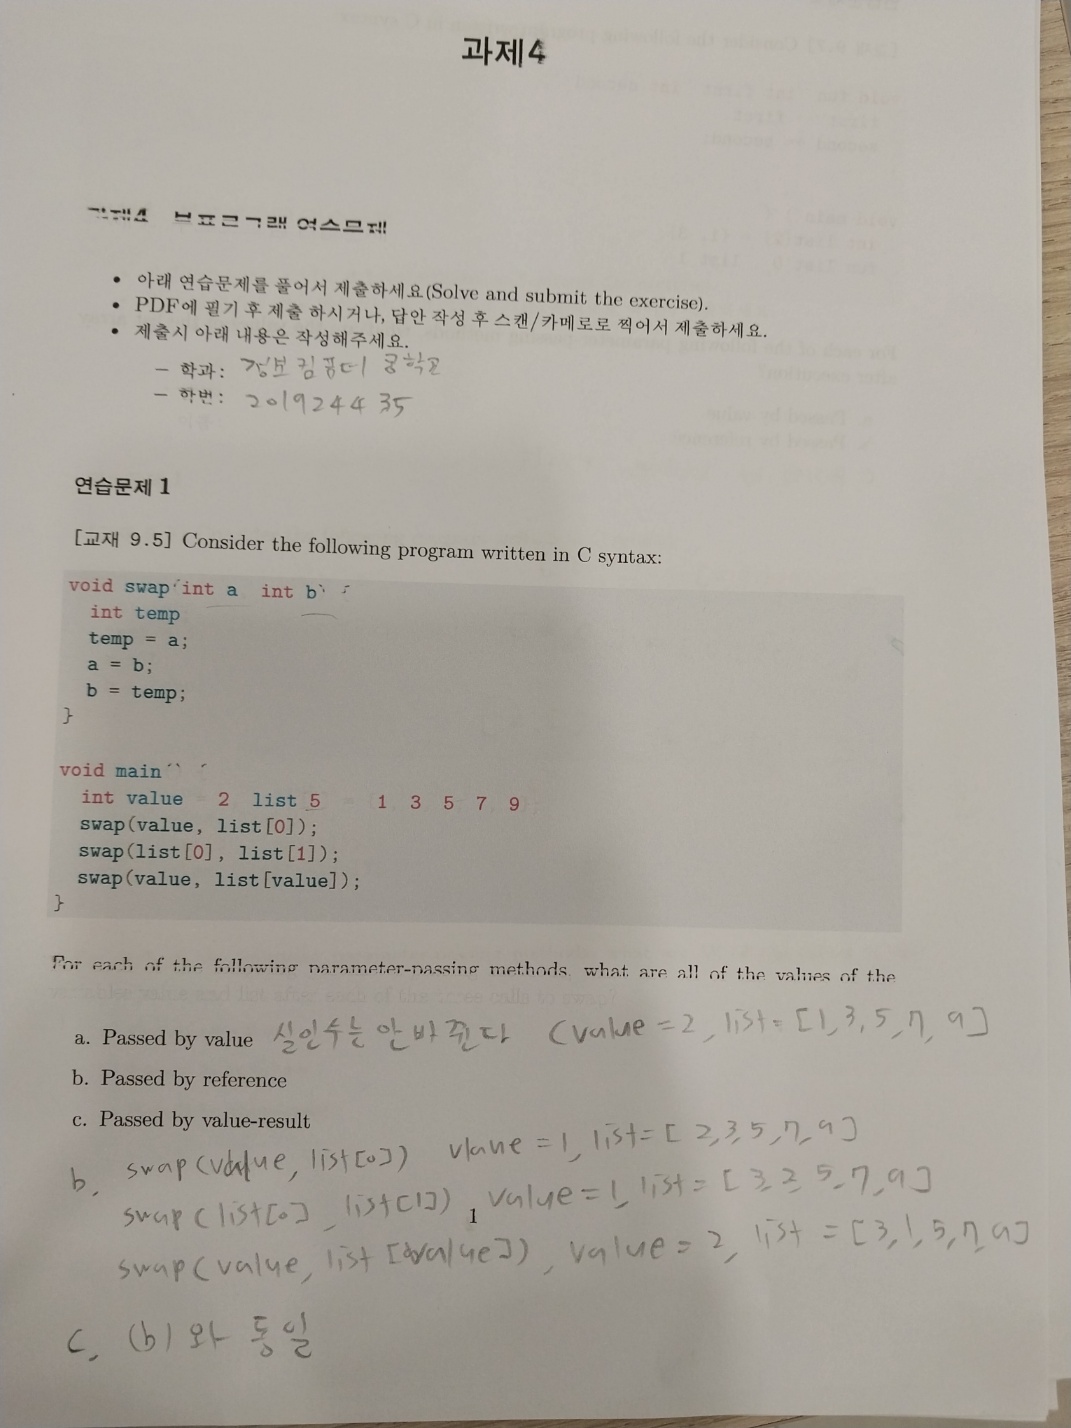 과제4
과제4 부프로그램 연습문제
• 아래 연습문제를 풀어서 제출하세요(Solve and submit the exercise).
• PDF에 필기 후 제출 하시거나, 답안 작성 후 스캔/카메로로 찍어서 제출하세요.
• 제출시 아래 내용은 작성해주세요.
– 학과: 정보컴퓨터 공학
– 학번: 201924435
연습문제 1
[교재 9.5] Consider the following program written in C syntax:
void swap(int a int b) {
int temp
temp = a;
a = b;
b = temp;
}
void main() {
int value 2 list 5 1 3 5 7 9
swap(value, list[0]);
swap(list[0], list[1]);
swap(value, list[value]);
}
For each of the following parameter-passing methods, what are all of the values of the
variables value and list after each of the three calls to swap?
a. Passed by value 실인수는 안 바뀐다 (value = 2, list = [1, 3, 5, 7, 9]
b. Passed by reference
c. Passed by value-result
b, swap(value, list[0]) vlaue = 1, list = [2,3,5,7,9]
swap(list[0], list[1]), value = 1, list = [3,2,5,7,9]
1
swap(value, list[value]), value = 2, list = [3,1,5,7,9]
c, (b)와 동일